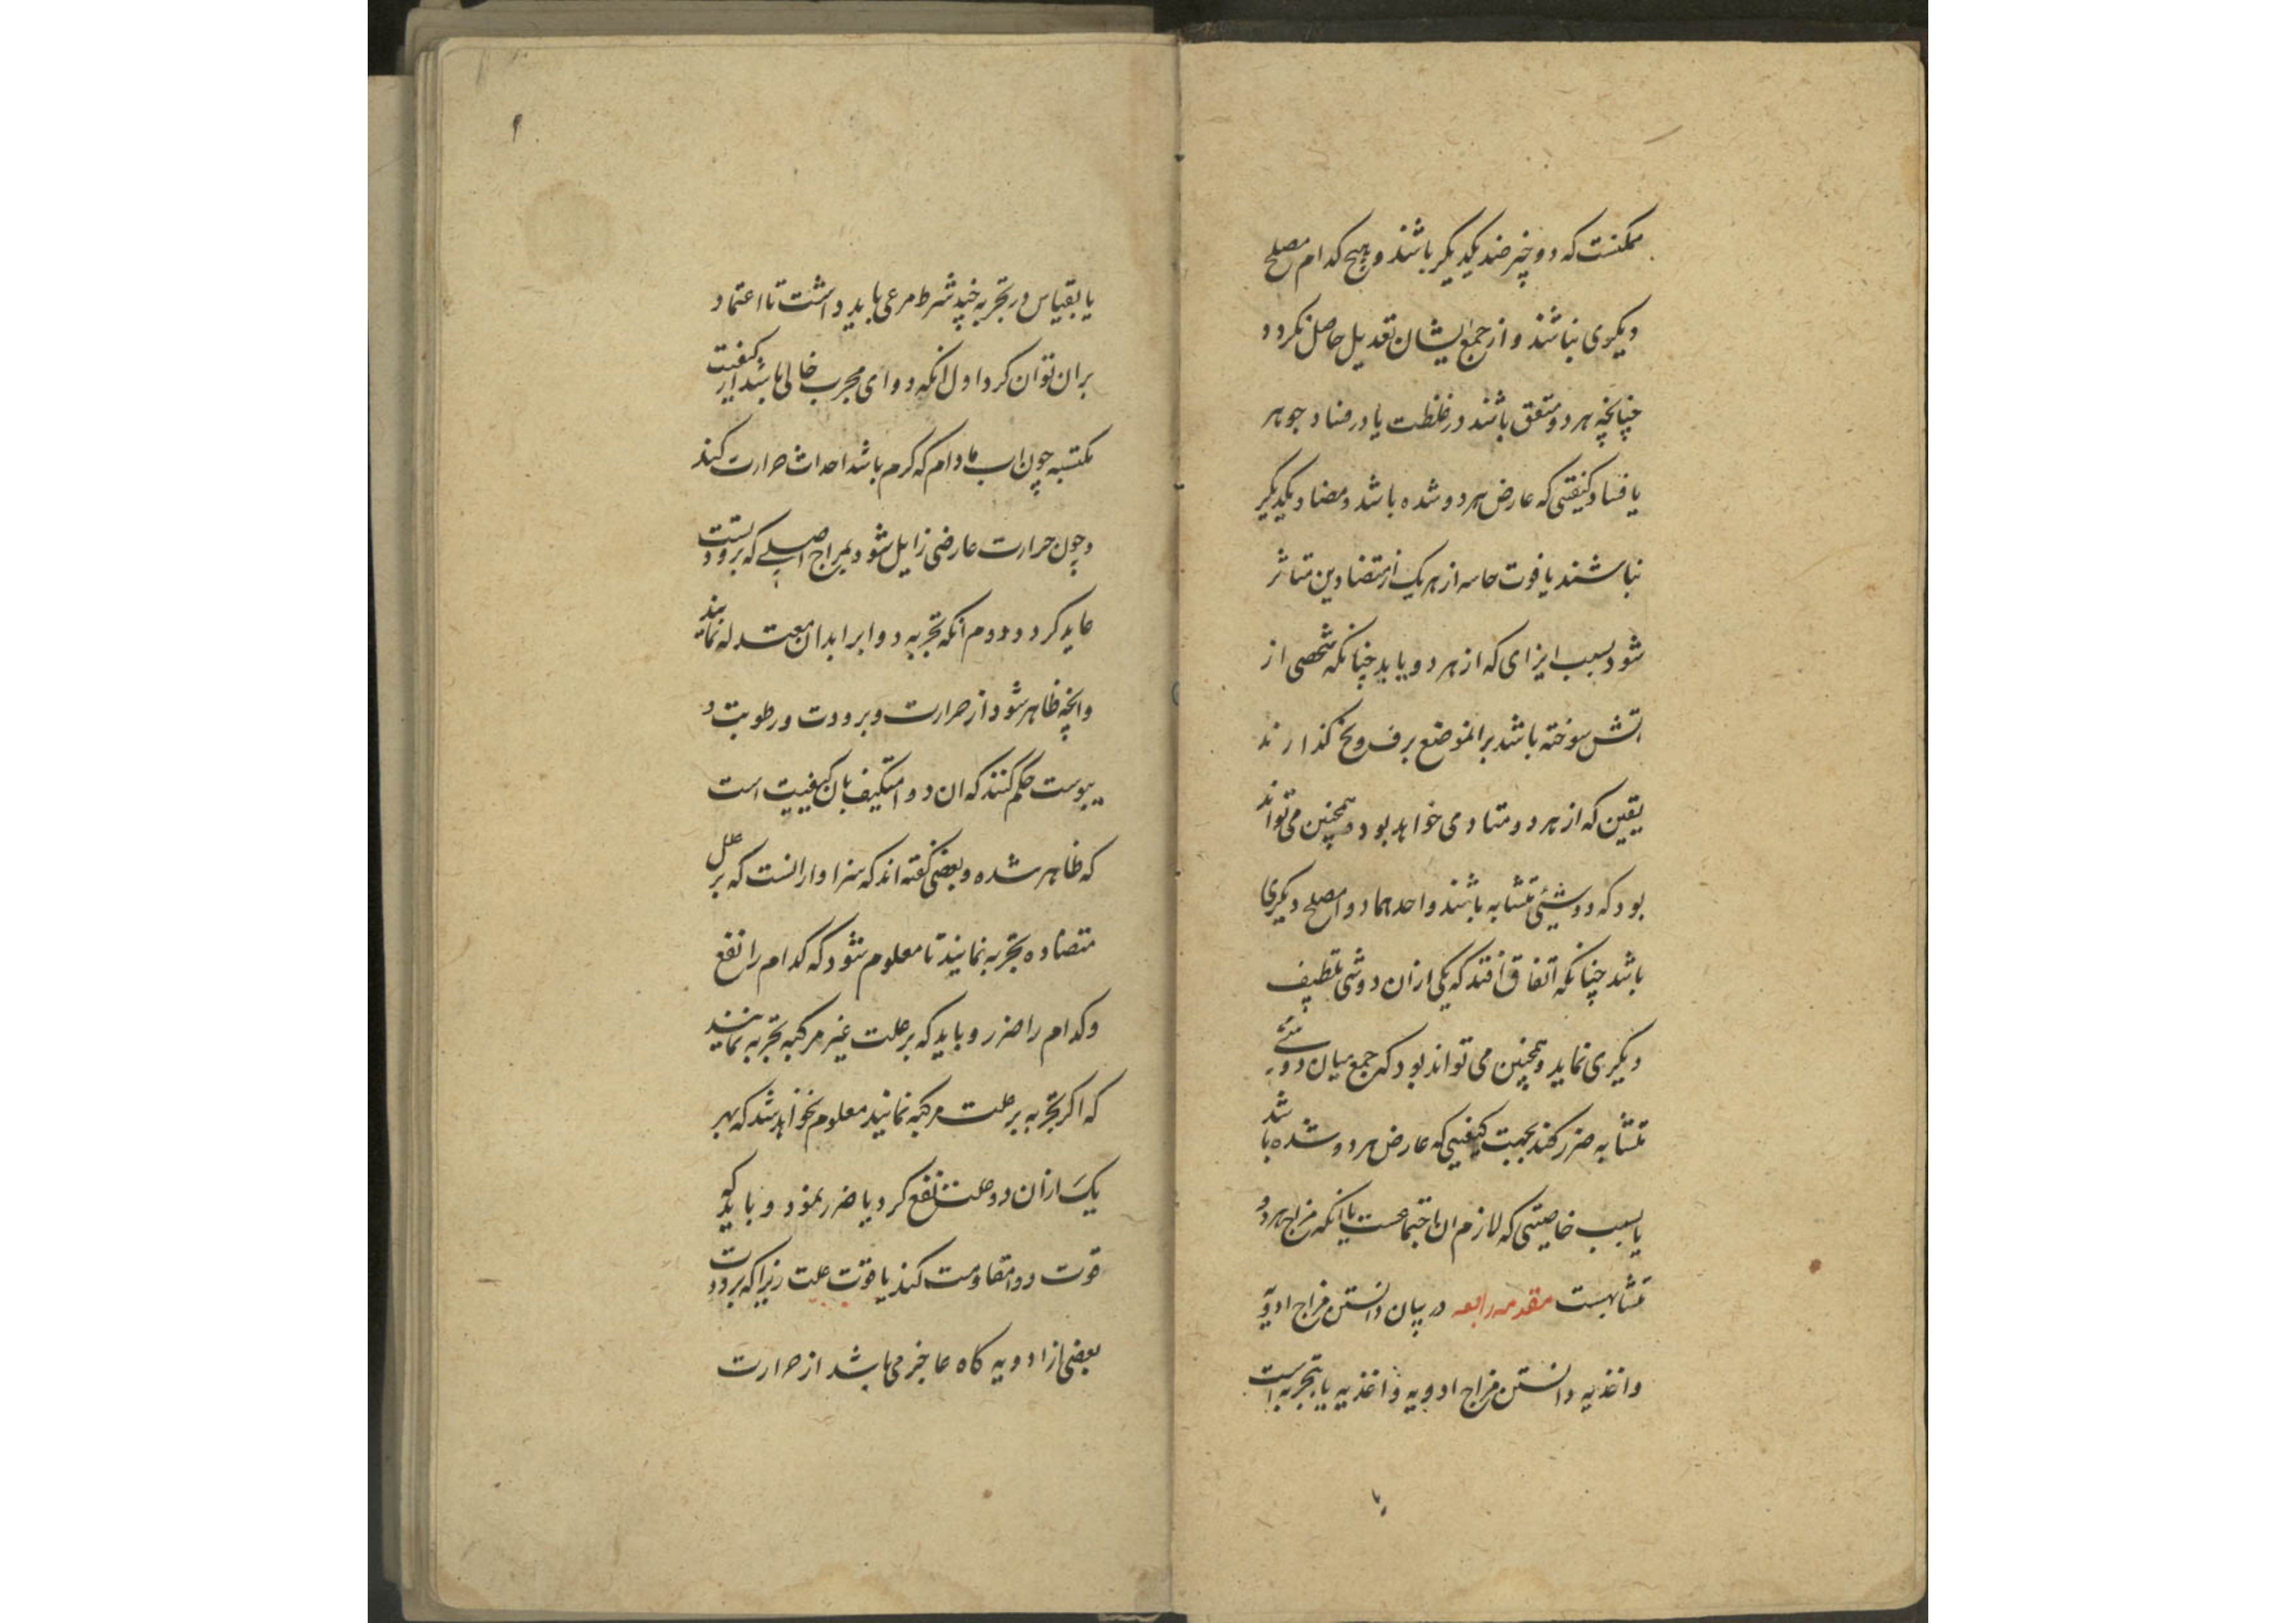 ممکنست که دو چیز ضد یکدیکر باشند و هیچ کدام مصلح
دیکری نباشند و از جمع ایشان تعدیل حاصل نکردد
چنانچه هر دو متفق باشند در غلظت یا در فساد جوهر
یا فساد کیفیتی که عارض هر دو شده باشد و مضاد یکدیکر
نباشند یا قوت حاسه از هر یک از متضادین متاثر
شود بسبب ایزای که از هر دو یابد چنانکه شخصی از
اتش سوخته باشد بر الموضع برف و یخ کذارند
یقین که از هر دو متاذی خواهد بود و همچنین می تواند
بود که دو شیئی متشابه باشند و احدهما دوا مصلح دیکری
باشد چنانکه اتفاق افتد که یکی از ان دو شی تلطیف
دیکری نماید و همچنین می تواند بود که جمع میان دو شیئی
متشابه ضرر کند بجهت کیفیتی که عارض هر دو شده باشد
یا بسبب خاصیتی که لازم ان اجتماعست یا انکه مزاج هر دو
متشابهست مقدمه رابعه در بیان دانستن مزاج ادویه
و اغذیه دانستن مزاج ادویه و اغذیه یا بتجربه است
۹
یا بقیاس و در تجربه چند شرط مرعی باید داشت تا اعتماد
بران توان کرد اول انکه دوای مجرب خالی باشد از کیفیت
مکتسبه چون اب مادام که کرم باشد احداث حرارت کند
و چون حرارت عارضی زایل شود بمزاج اصلی که برودتست
عاید کردد و دوم انکه تجربه دوا بر ابدان معتدله نمایند
و انچه ظاهر شود از حرارت و برودت و رطوبت و
یبوست حکم کنند که ان دوا متکیف بان کیفییت است
که ظاهر شده و بعضی کفته اند که سزاوار انست که بر علل
متضاده تجربه نمایند تا معلوم شود که کدام را نفع
و کدام را ضرر و باید که بر علت غیر مرکبه تجربه نمایند
که اکر تجربه بر علت مرکبه نمایند معلوم نخواهد شد که بهر
یک از ان دو علت نفع کرد یا ضرر نمود و باید که
قوت دوا مقاومت کند یا قوت علت زیرا که برودت
بعضی از ادویه کاه عاجز می باشد از حرارت